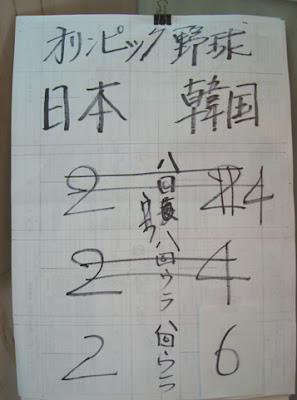 オリンピック 野球
日本 韓国
2 八回 4
2 八回ウラ 4
2 八回ウラ 6